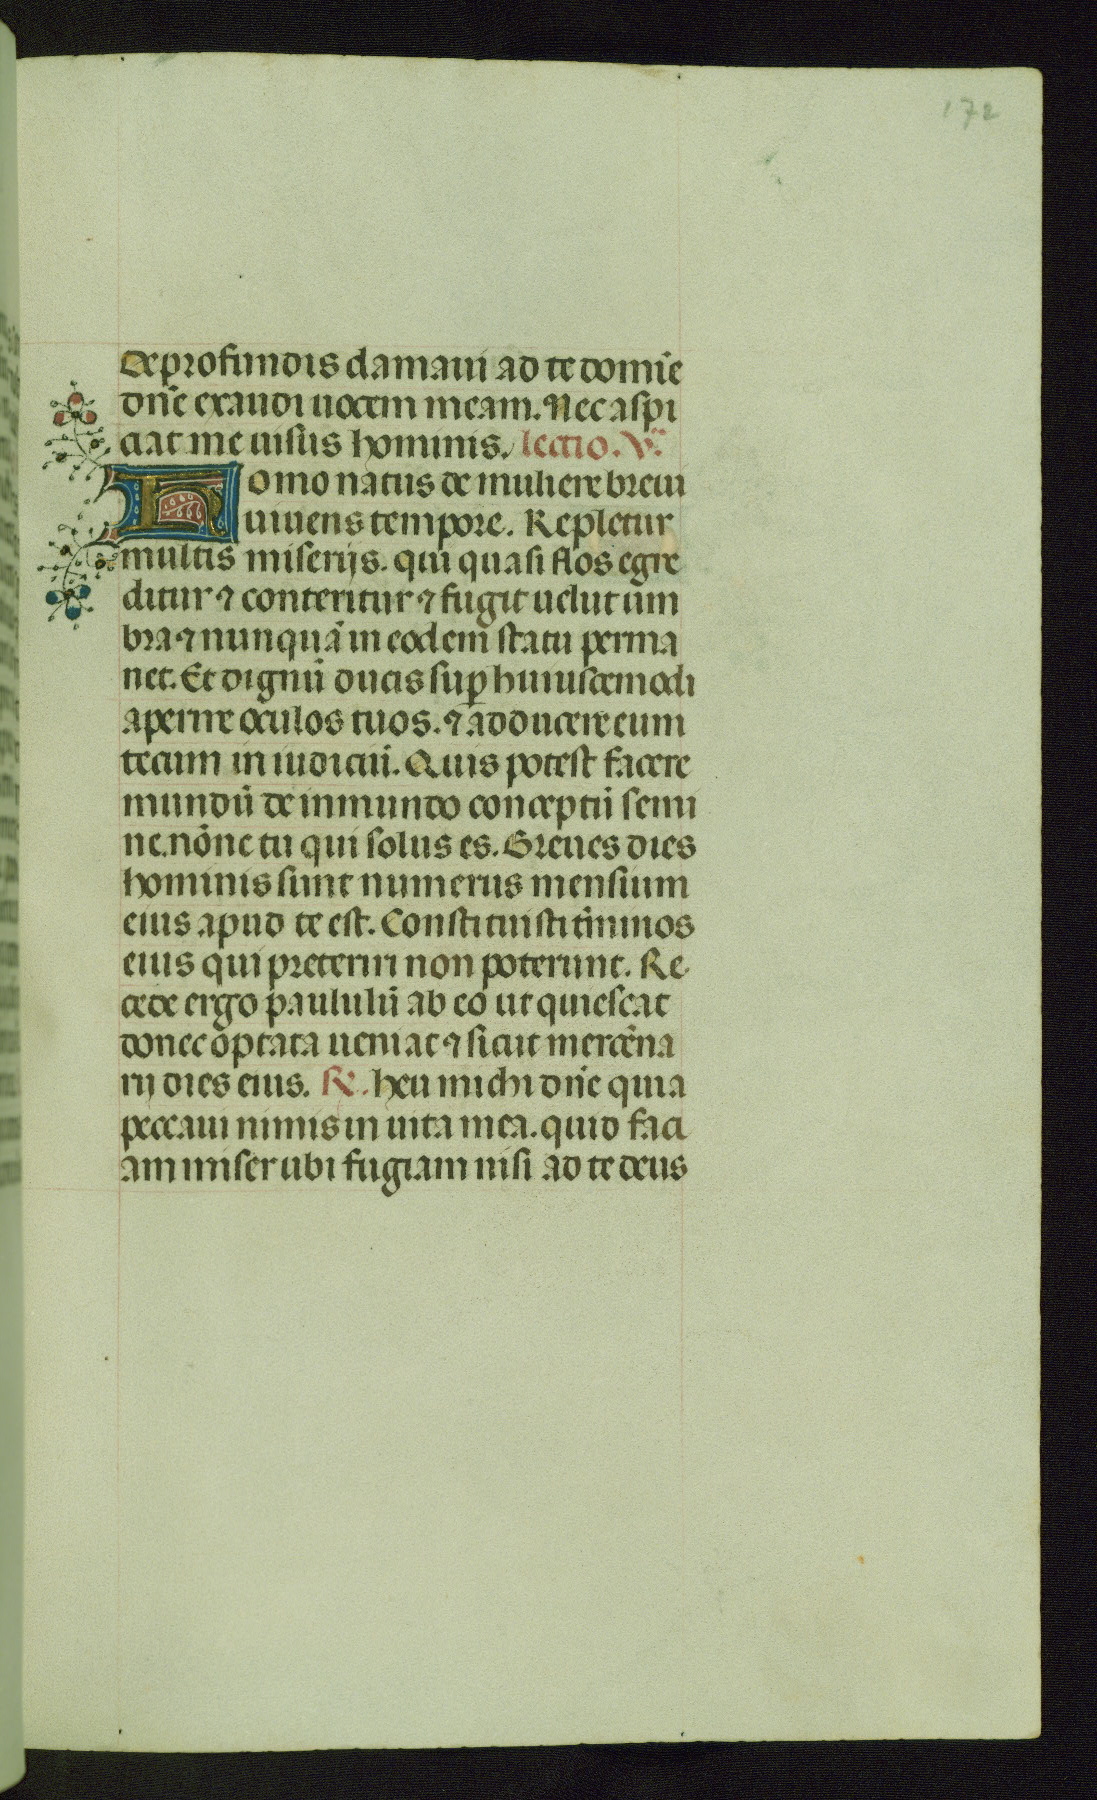 172
De profundis clamaui ad te domĩe
dñe exaudi uocem meam. Nec aspi
ciat me uisus hominis. lectio. V.ᵃ
Homo natus de muliere breui
uiuens tempore. Repletur
multis miserijs. qui quasi flos egre
ditur ⁊ conteritur ⁊ fugit uelut um
bra ⁊ nunquã in eodem statu perma
net. Et dignũ ducis suꝑ huiuscemodi
aperire oculos tuos. ⁊ adducere eum
tecum in iudiciũ. Quis potest facere
mundũ de inmundo conceptũ semi
ne. nõne tu qui solus es. Breues dies
hominis sunt numerus mensium
eius apud te est. Constituisti t̃minos
eius qui preteriri non poterunt. Re
cede ergo paululũ ab eo ut quiescat
donec optata ueniat ⁊ sicut mercẽna
rij dies eius. R̃. heu michi dñe quia
peccaui nimis in uita mea. quid faci
am miser ubi fugiam nisi ad te deus